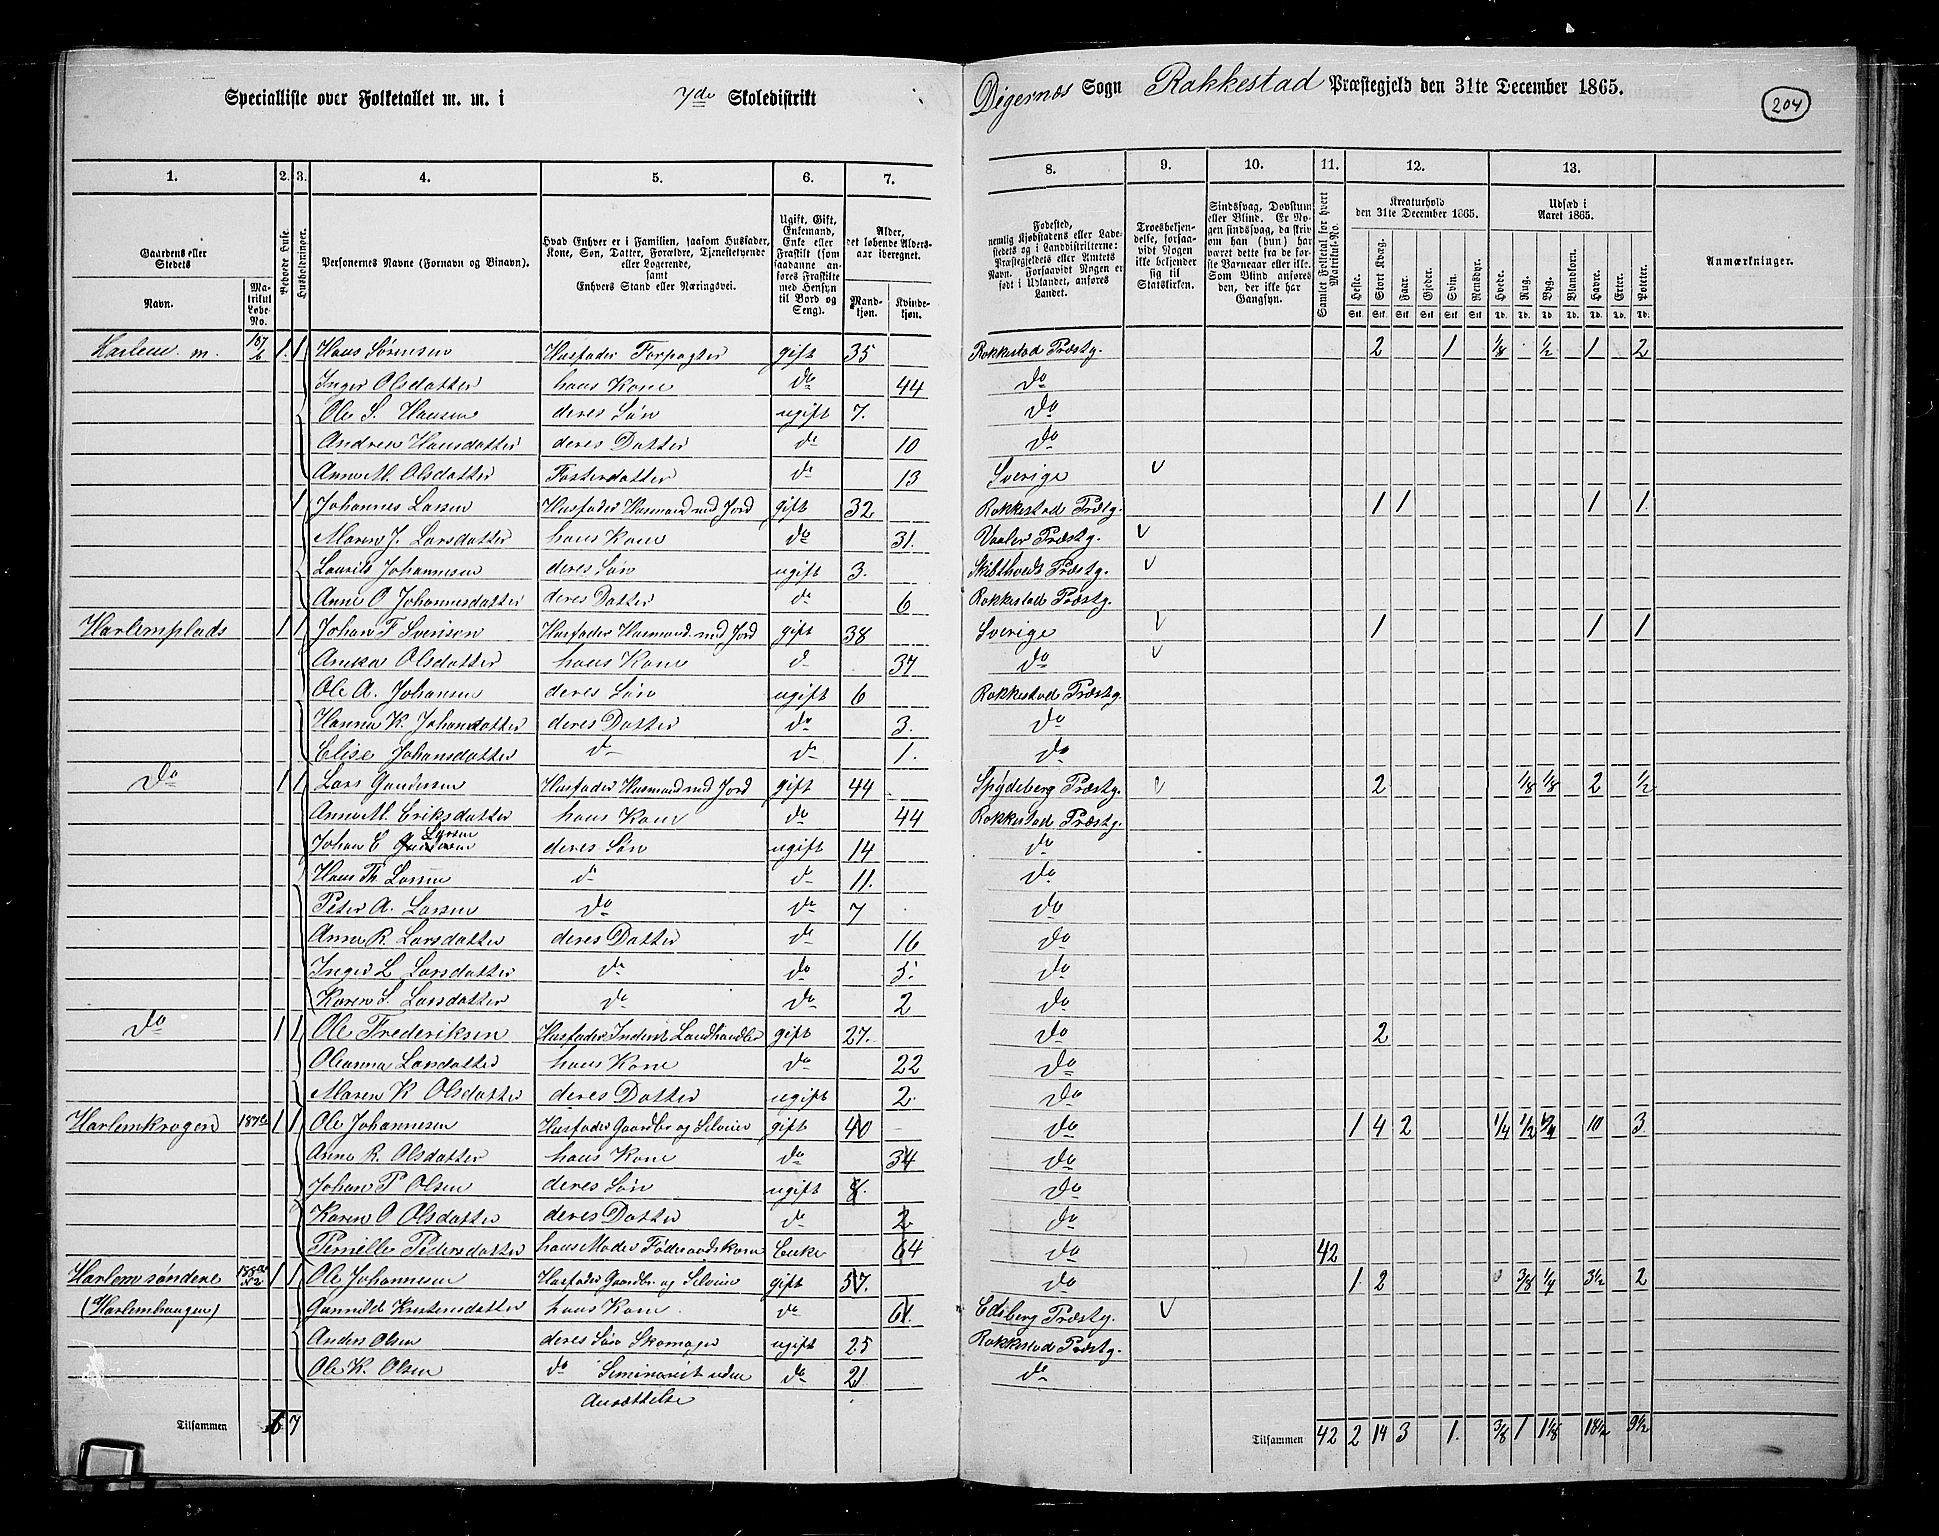 Specialliste over Folketallet m. m. i 7de Skoledistrikt
Degernæs Sogn Rakkestad Præstegjeld den 31te December 1865.
204
1. 2. 3. 4. 5. 6. 7. 8. 9. 10. 11. 12. 13.
Gaardens eller Stedets
Navn.
Matrikul Løbe-No.
Beboede Huse.
Husholdninger.
Personernes Navne (Fornavn og Binavn).
Hvad Enhver er i Familien, saasom Husfader, Kone, Søn, Datter, Forældre, Tjenestetyende eller Logerende,
samt
Enhvers Stand eller Næringsvei.
Ugift, Gift, Enkemand, Enke eller Fraskilt (som saadanne anføres Fraskilte med Hensyn til Bord og Seng).
Alder, det løbende Aldersaar iberegnet.
Mandkjøn.
Kvindekjøn.
Fødested,
nemlig Kjøbstadens eller Ladestedets og i Landdistrikterne: Præstegjeldets eller Amtets Navn. Forsaavidt Nogen er født i Udlandet, anføres Landet.
Troesbekjendelse, forsaavidt Nogen ikke bekjender sig til Statskirken.
Sindssvag, Døvstum eller Blind. Er Nogen sindssvag, da skrives om han (hun) har været dette fra de første Barneaar eller ikke. Som Blind anføres den, der ikke har Gangsyn.
Samlet Folketal for hvert Matrikul-No.
Kreaturhold den 31te December 1865.
Heste. Stort Kvæg. Faar. Gjeder. Svin. Rensdyr.
Udsæd i Aaret 1865.
Hvede. Rug. Byg. Blandkorn. Havre. Erter. Poteter.
Anmærkninger.
Harlem m. 187 b 1 1 Hans Sørensen Husfader Forpagter gift 35 Rakkestad Præstg. 2 1 1/8 1/2 1 2
Inger Olsdatter hans Kone do 44 do
Ole S. Hansen deres Søn ugift 7. do
Andrea Hansdatter deres Datter do 10 do
Anne M. Olsdatter Fosterdatter do 13 Sverige
1 Johannes Larsen Husfader Husmand med Jord gift 32 Rakkestad Præstg. 1 1 1 1
Maren J. Larsdatter hans Kone do 31. Vaaler Præstg.
Laurits Johannesen deres Søn ugift 3. Skibthvedt Præstg.
Anne O. Johannesdatter deres Datter do 6 Rakkestad Præstg.
Harlemplads 1 1 Johan F Svensen Husfader Husmand med Jord gift 38 Sverige 1 1 1
Anika Olsdatter hans Kone do 37 do
Ole A. Johansen deres Søn ugift 6 Rakkestad Præstg.
Hanna K. Johansdatter deres Datter do 3. do
Elise Johansdatter do do 1. do
do 1 1 Lars Gundersen Husfader Husmand med Jord gift 44 Spydeberg Præstg. 2 1/8 1/8 2 1/2
Anne M. Eriksdatter hans Kone do 44 Rakkestad Præstg.
Johan E Larsen deres Søn ugift 14 do
Hans Th Larsen do do 11. do
Peter A. Larsen do do 7 do
Anne R. Larsdatter deres Datter do 16 do
Inger L Larsdatter do do 5. do
Karen S. Larsdatter do do 2 do
do 1 1 Ole Frederiksen Husfader Inderst Landhandler gift 27. do 2
Oleanna Larsdatter hans Kone do 22 do
Maren K Olsdatter deres Datter ugift 2. do
Harlemkrogen 187 1 1 Ole Johannesen Husfader Gaardbr og Selveier gift 40 do 1 4 2 1/4 1/2 10 3
Anne R. Olsdatter hans Kone do 34 do
Johan P Olsen deres Søn ugift 8. do
Karen O Olsdatter deres Datter do 2 do
Pernille Pedersdatter hans Moder Føderaadskone Enke 64 do 42
Harlem søndene 1 1 Ole Johannesen Husfader Gaardbr. og Selveier gift 57. do 1. 2 3/8 1/4 3 1/2 2
(Harlemhaugen) Gunnild Kristensdatter hans Kone. do 61. Edsberg Præstg.
Anders Olsen deres Søn Skomager ugift 25 Rakkestad Præstg.
Ole K. Olsen do Seminarist uden do 21 do
Ansættelse
Tilsammen 6 7 Tilsammen 42 2 14 3 1. 3/8 1 1 1/8 18 1/2 9 1/2